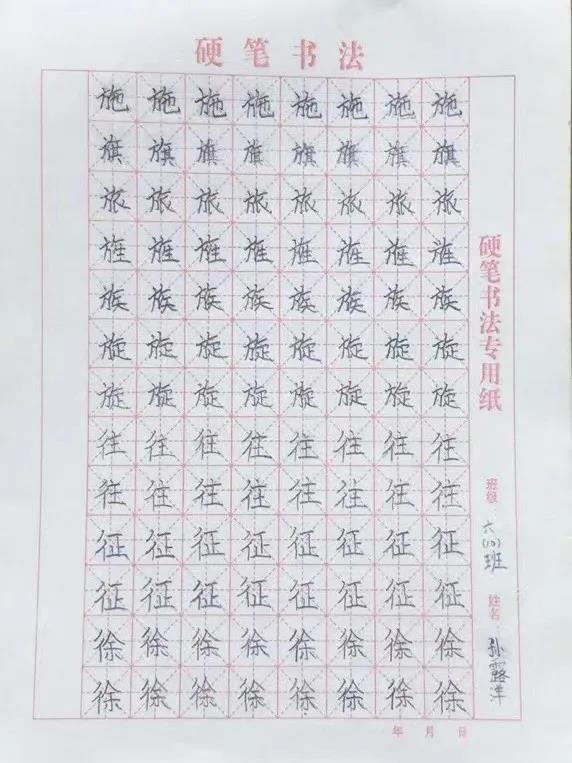 硬笔书法
施施施施施施施施
旗旗旗旗旗旗旗旗
旅旅旅旅旅旅旅旅
旌旌旌旌旌旌旌旌
族族族族族族族族
旋旋旋旋旋旋旋旋
旋旋旋旋旋旋旋旋
往往往往往往往往
往往往往往往往往
征征征征征征征征
征征征征征征征征
徐徐徐徐徐徐徐徐
徐徐徐徐徐徐徐徐
硬笔书法专用纸
班级 六(10)班
姓名 孙露洋
年 月 日